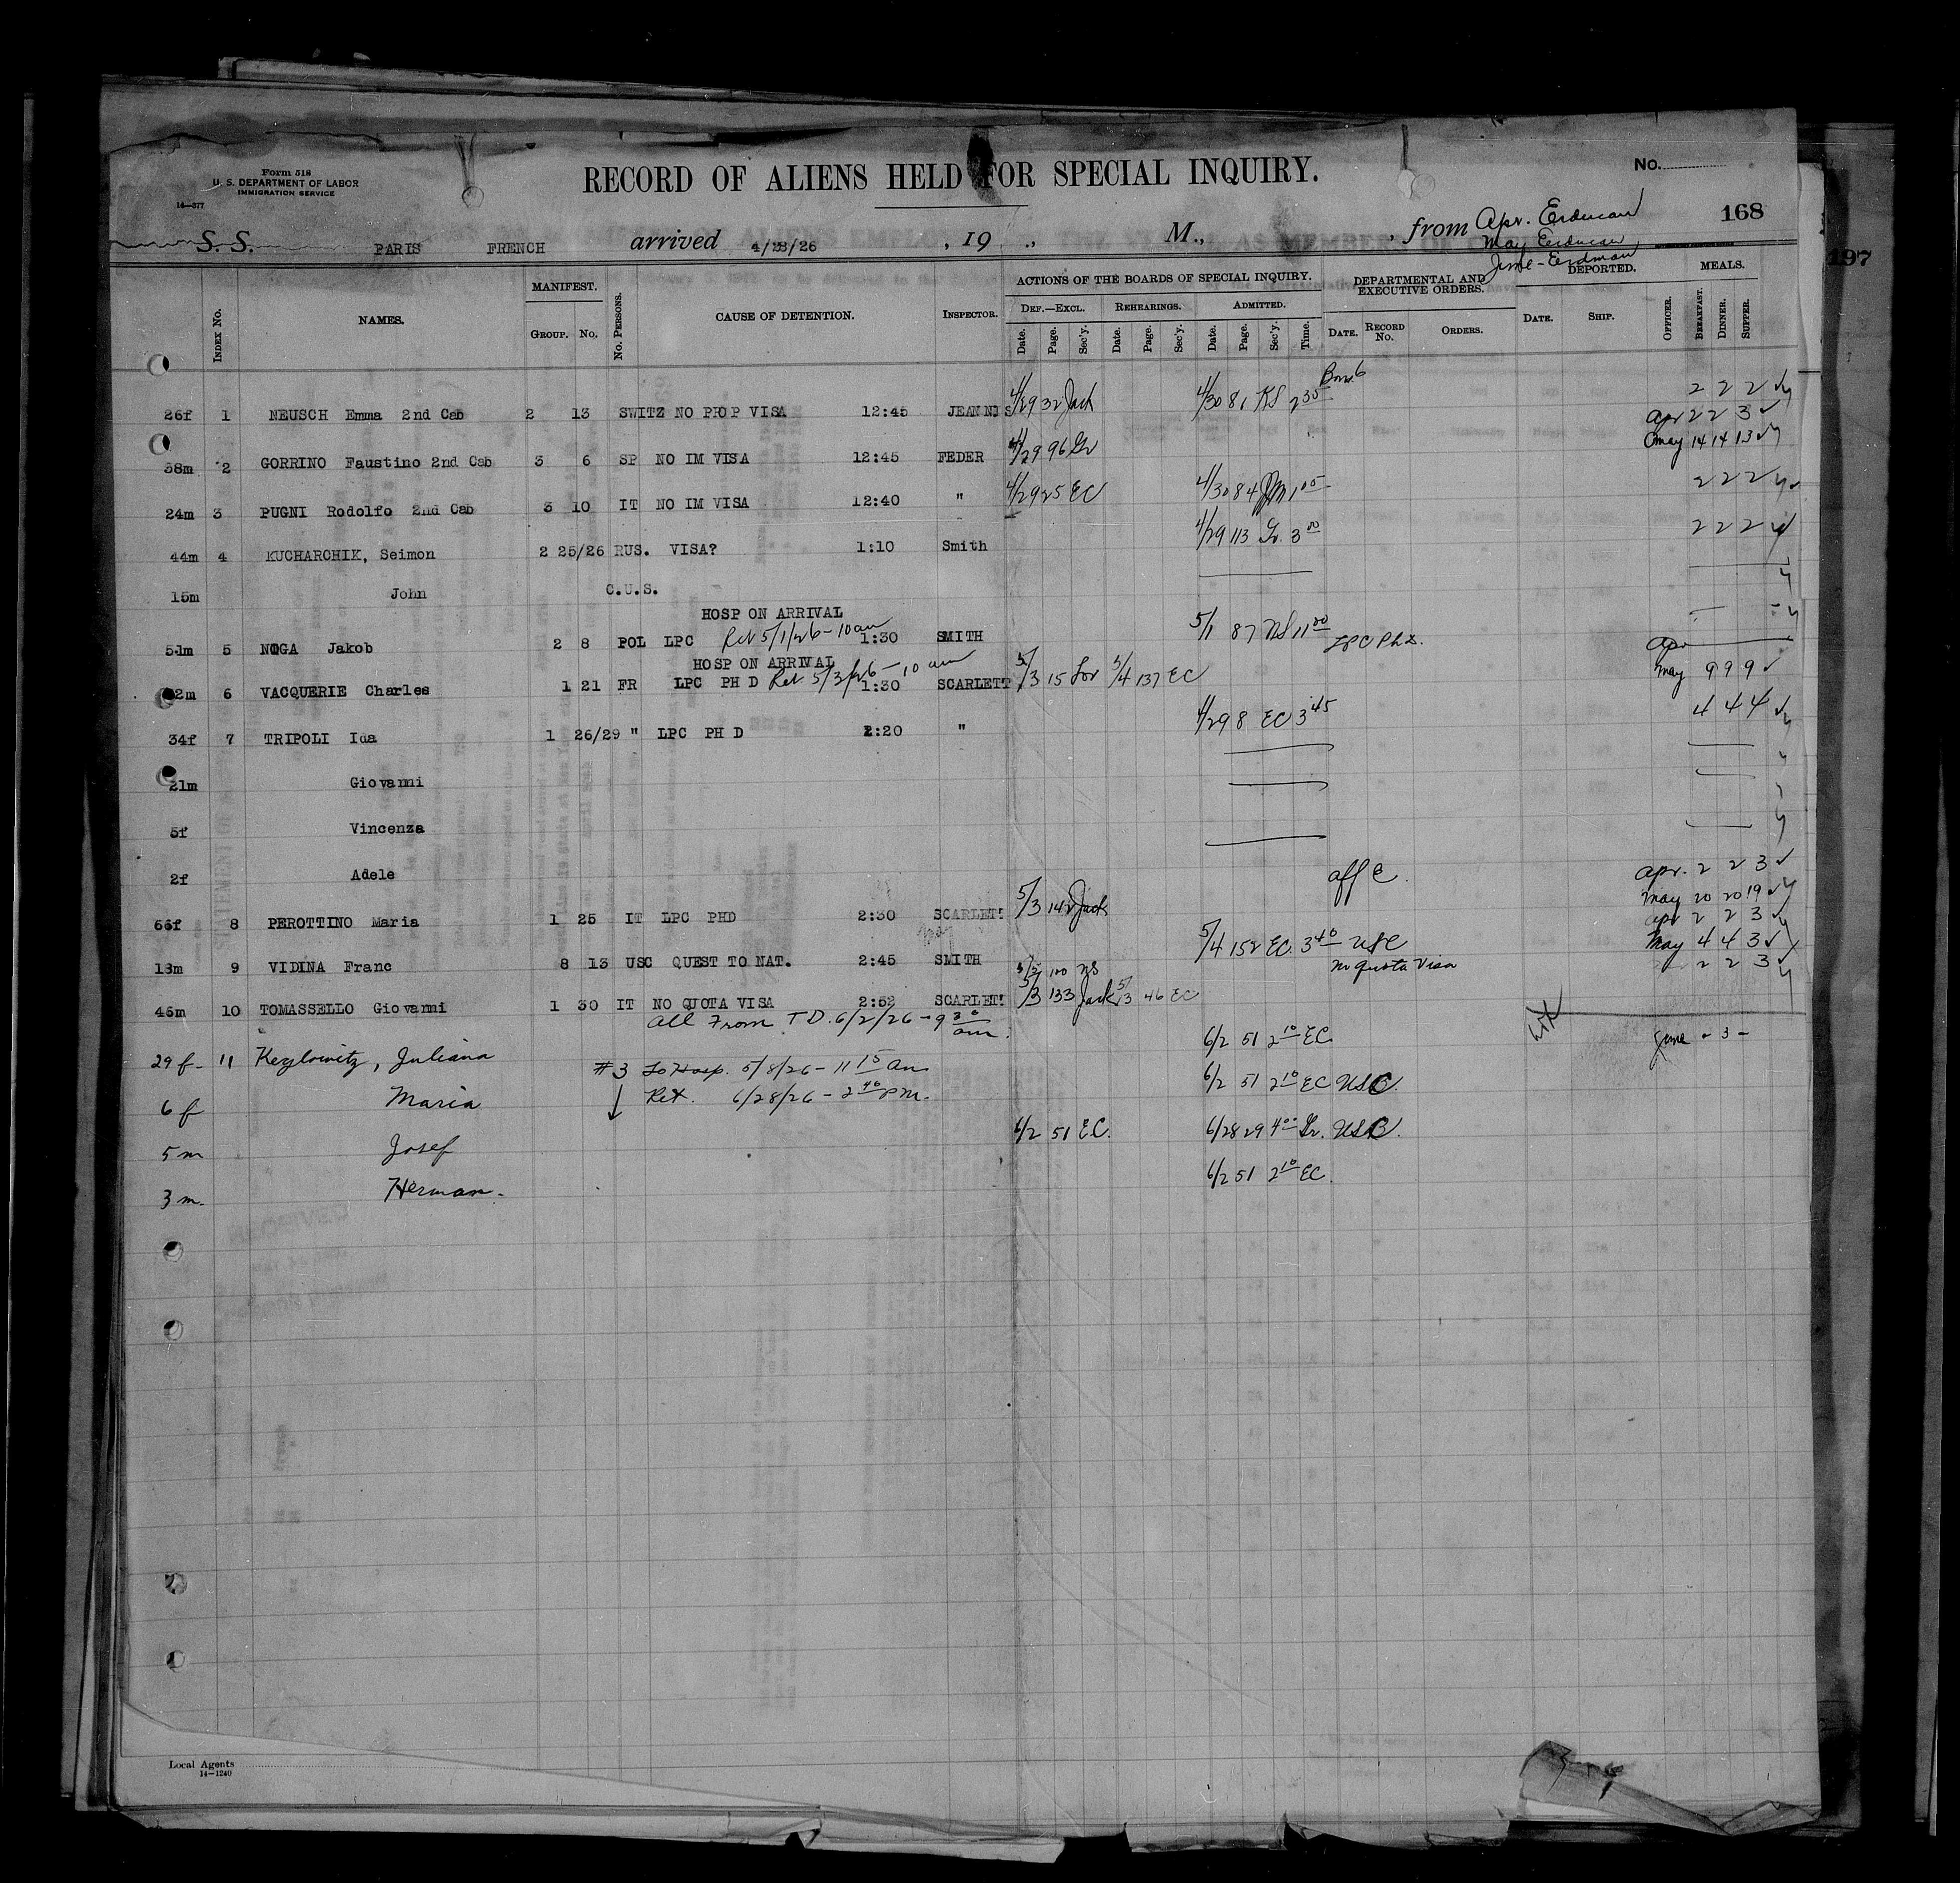 Form 518
U. S. DEPARTMENT OF LABOR
IMMIGRATION SERVICE
14—377
RECORD OF ALIENS HELD FOR SPECIAL INQUIRY.
No.
168
S. S. PARIS FRENCH arrived 4/28/26, 19 , M., , from Apr. Erdman
May Erdman
June - Erdman
197
INDEX No. NAMES. MANIFEST. GROUP. No. No. PERSONS. CAUSE OF DETENTION. INSPECTOR. ACTIONS OF THE BOARDS OF SPECIAL INQUIRY. DEPARTMENTAL AND EXECUTIVE ORDERS. DEPORTED. MEALS.
DEF.—EXCL. REHEARINGS. ADMITTED.
Date. Page. Sec'y. Date. Page. Sec'y. Date. Page. Sec'y. Time. DATE. RECORD No. ORDERS. DATE. SHIP. OFFICER. BREAKFAST. DINNER. SUPPER.
26f 1 NEUSCH Emma 2nd Cab 2 13 SWITZ NO PROP VISA 12:45 JEANNIS 4/29 32 Jack 4/30 81 KS 2 35 2 2 2
Apr 2 2 3
38m 2 GORRINO Faustino 2nd Cab 3 6 SP NO IM VISA 12:45 FEDER 4/29 96 Gr May 14 14 13
24m 3 PUGNI Rodolfo 2nd Cab 3 10 IT NO IM VISA 12:40 " 4/29 25 EC 4/30 84 1 05 2 2 2
44m 4 KUCHARCHIK, Seimon 2 25/26 RUS. VISA? 1:10 Smith 4/29 113 Gr. 3 00 2 2 2
15m John C.U.S.
HOSP ON ARRIVAL
51m 5 NOGA Jakob 2 8 POL LPC Ret 5/1/26 - 10 am 1:30 SMITH 5/1 87 NS 11 00 LPC Ph D. Apr
HOSP ON ARRIVAL
2m 6 VACQUERIE Charles 1 21 FR LPC PH D Ret 5/3/26 - 10 am 1:30 SCARLETT 5/3 15 Lor 5/4 137 EC May 9 9 9
34f 7 TRIPOLI Ida 1 26/29 " LPC PH D 2:20 " 4/29 8 EC 3 45 4 4 4
21m Giovanni
5f Vincenza
2f Adele
66f 8 PEROTTINO Maria 1 25 IT LPC PHD 2:30 SCARLETT 5/3 142 Jack aff E. Apr. 2 2 3
May 20 20 19
13m 9 VIDINA Franc 8 13 USC QUEST TO NAT. 2:45 SMITH 5/3 100 NS 5/4 152 EC. 3 40 USC Apr 2 2 3
May 4 4 3
No quota Visa
46m 10 TOMASSELLO Giovanni 1 30 IT NO QUOTA VISA 2:52 SCARLETT 5/3 133 Jack 5/13 46 EC 2 2 3
All From T.D. 6/2/26 - 9 30 am.
29 f- 11 Keylowitz, Juliana #3 To Hosp. 5/8/26 - 11 15 am 6/2 51 2 10 EC June - 3 -
6 f Maria Ret. 6/28/26 - 2 40 pm. 6/2 51 2 10 EC USC.
5 m Josef 6/2 51 E.C. 6/28 29 4 00 Gr. USC.
3 m. Herman. 6/2 51 2 10 EC.
Local Agents
14—1240